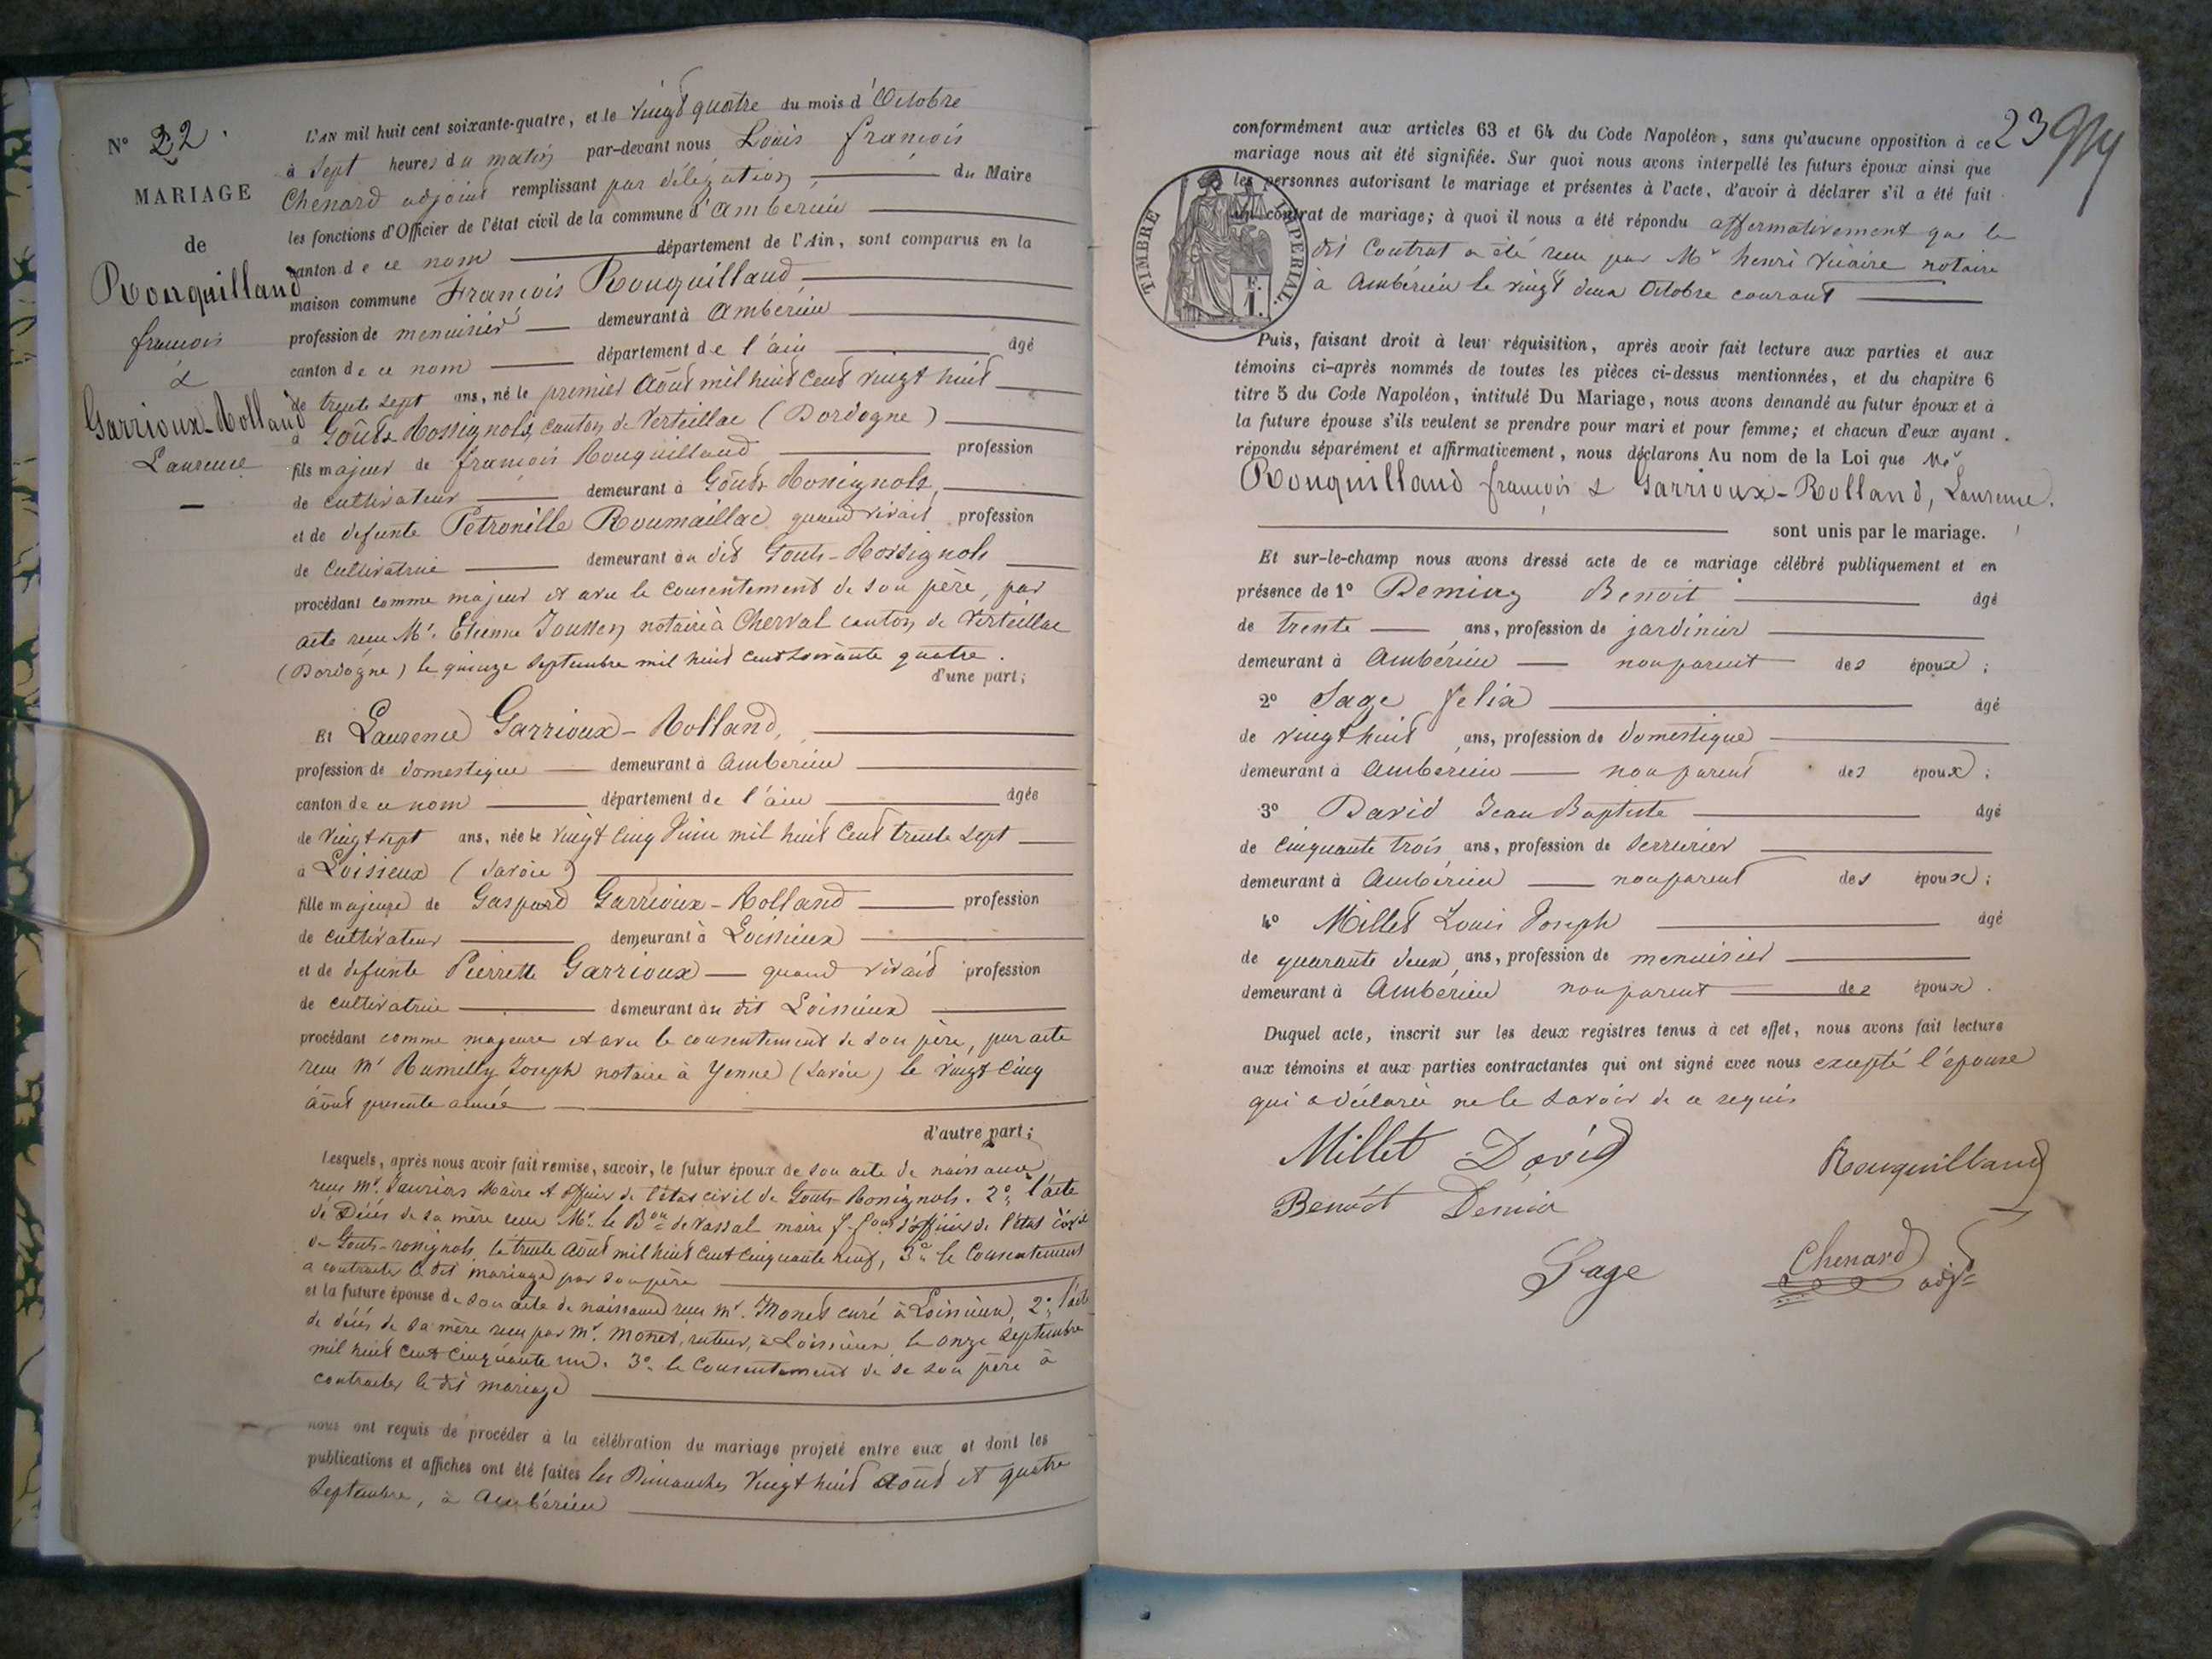 N° 22.
MARIAGE
de
Rouquillaud
françois
&
Garrioux-Rolland
Laurence
L'AN mil huit cent soixante-quatre, et le vingt quatre du mois d'Octobre
à Sept heures du matin par-devant nous Louis françois
Chenard adjoint remplissant par délégation du Maire
les fonctions d'Officier de l'état civil de la commune d'Amberieu
canton de ce nom département de l'Ain, sont comparus en la
maison commune François Rouquillaud
profession de menuisier demeurant à Amberieu
canton de ce nom département de l'ain âgé
de trente sept ans, né le premier Août mil huit cent vingt huit
à Goûts Rossignols, canton de Verteillac (Dordogne)
fils majeur de françois Rouquillaud profession
de cultivateur demeurant à Goûts Rossignols,
et de defunte Petronille Roumaillac quand vivait profession
de cultivatrice demeurant au dit Gouts-Rossignols
procédant comme majeur et avec le consentement de son père, par
acte reçu Mr. Etienne Joussen notaire à Cherval canton de Verteillac
(Dordogne) le quinze Septembre mil huit cent soixante quatre.
d'une part;
Et Laurence Garrioux-Rolland,
profession de domestique demeurant à Amberieu
canton de ce nom département de l'ain âgée
de vingt sept ans, née le vingt cinq Juin mil huit cent trente sept
à Loisieux (Savoie)
fille majeure de Gaspard Garrioux-Rolland profession
de cultivateur demeurant à Loissieux
et de defunte Pierrette Garrioux quand vivait profession
de cultivatrice demeurant au dit Loissieux
procédant comme majeure et avec le consentement de son père, par acte
reçu Mr Rumilly Joseph notaire à Yenne (Savoie) le vingt cinq
août presente année
d'autre part;
Lesquels, après nous avoir fait remise, savoir, le futur époux de son acte de naissance
reçu Mr. Maire et officier de l'état civil de Gouts-Rossignols. 2° l'acte
de Décès de sa mère reçu Mr. le Bon de Vassal maire f. fons d'officier de l'état civil
de Gouts-rossignols le trente Août mil huit cent cinquante neuf, 3° le Consentement
a contracter le dit mariage par son père
et la future épouse de son acte de naissance reçu Mr. Monet curé à Loissieux, 2° l'acte
de décès de sa mère reçu par Mr. Monet, recteur, à Loissieux, le onze Septembre
mil huit cent cinquante un. 3° le Consentement de de son père à
contracter le dit mariage
nous ont requis de procéder à la célébration du mariage projeté entre eux et dont les
publications et affiches ont été faites les Dimanches vingt huit août et quatre
Septembre, à Ambérieu
23
conformément aux articles 63 et 64 du Code Napoléon, sans qu'aucune opposition à ce
mariage nous ait été signifiée. Sur quoi nous avons interpellé les futurs époux ainsi que
les personnes autorisant le mariage et présentes à l'acte, d'avoir à déclarer s'il a été fait
un contrat de mariage; à quoi il nous a été répondu affermativement que le
dit Contrat a été reçu par Mr henri Vicaire notaire
à Ambérieu le vingt deux Octobre courant
TIMBRE IMPERIAL.
F.
1.
Puis, faisant droit à leur réquisition, après avoir fait lecture aux parties et aux
témoins ci-après nommés de toutes les pièces ci-dessus mentionnées, et du chapitre 6
titre 5 du Code Napoléon, intitulé Du Mariage, nous avons demandé au futur époux et à
la future épouse s'ils veulent se prendre pour mari et pour femme; et chacun d'eux ayant
répondu séparément et affirmativement, nous déclarons Au nom de la Loi que
Rouquillaud françois & Garrioux-Rolland, Laurence.
sont unis par le mariage.
Et sur-le-champ nous avons dressé acte de ce mariage célébré publiquement et en
présence de 1° Benoit âgé
de trente ans, profession de jardinier
demeurant à Ambérieu non parent des époux;
2° Sage felix âgé
de vingt huit ans, profession de domestique
demeurant à Amberieu non parent des époux;
3° David Jean Baptiste âgé
de cinquante trois ans, profession de Serrurier
demeurant à Ambérieu non parent des époux;
4° Millet Louis Joseph âgé
de quarante deux ans, profession de menuisier
demeurant à Amberieu non parent des époux.
Duquel acte, inscrit sur les deux registres tenus à cet effet, nous avons fait lecture
aux témoins et aux parties contractantes qui ont signé avec nous excepté l'épouse
qui a déclaré ne le savoir de ce requis
Millet David Rouquillaud
Benoit
Sage Chenard adjt